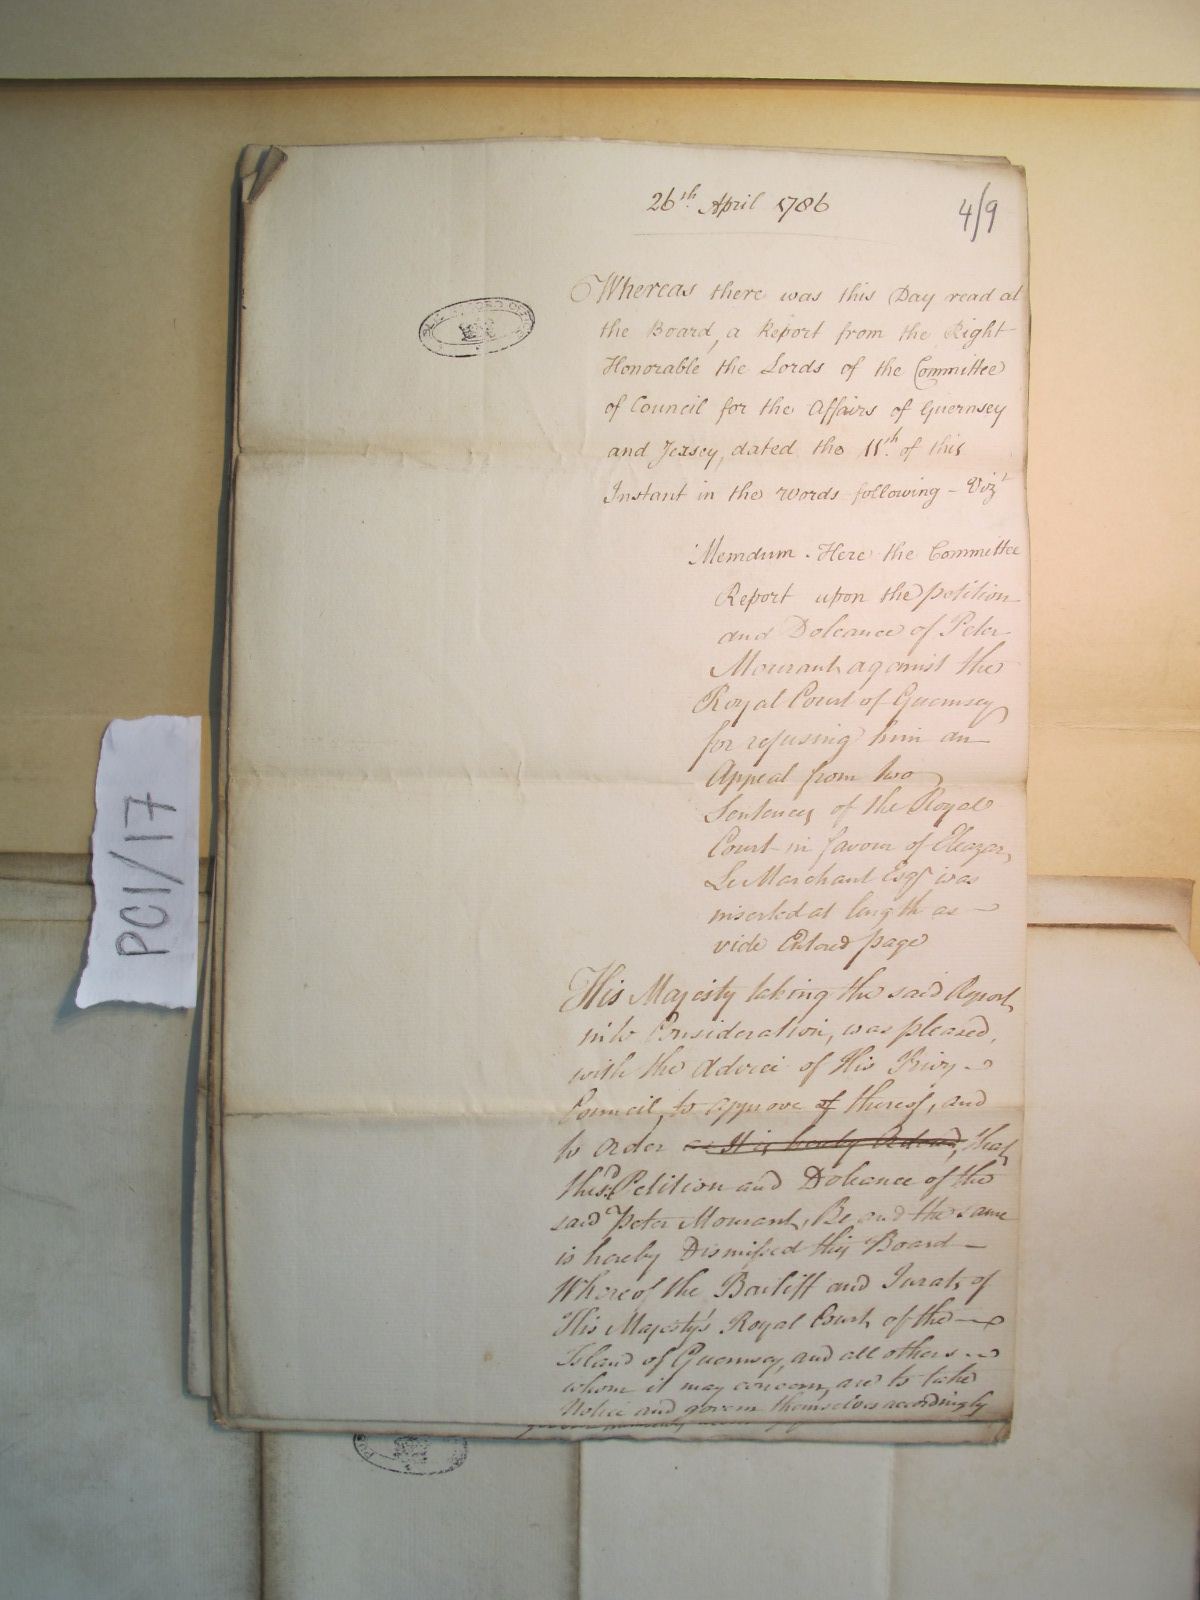 26th April 1786
4/9
PUBLIC RECORD OFFICE
Whereas there was this Day read at
the Board, a Report from the Right
Honorable the Lords of the Committee
of Council for the Affairs of Guernsey
and Jersey, dated the 11th. of this
Instant in the words following - Vizt
Memdum. Here the Committee
Report upon the petition
and Doleance of Peter
Mourant against the
Royal Court of Guernsey
for refusing him an
Appeal from two
Sentences of the Royal
Court in favour of Eleazar
Le Marchant Esqr was
inserted at length as
vide Entered page
PC1/17
His Majesty taking the said Report
into Consideration, was pleased,
with the advice of His Privy
Council, to approve of thereof, and
to order as It is hereby Ordered, that
the sd. Petition and Doleance of the
said Peter Mourant, Be and the same
is hereby Dismissed this Board
Whereof the Bailiff and Jurats of
His Majesty's Royal Court of the
Island of Guernsey, and all others
whom it may concern, are to take
Notice and govern themselves accordingly